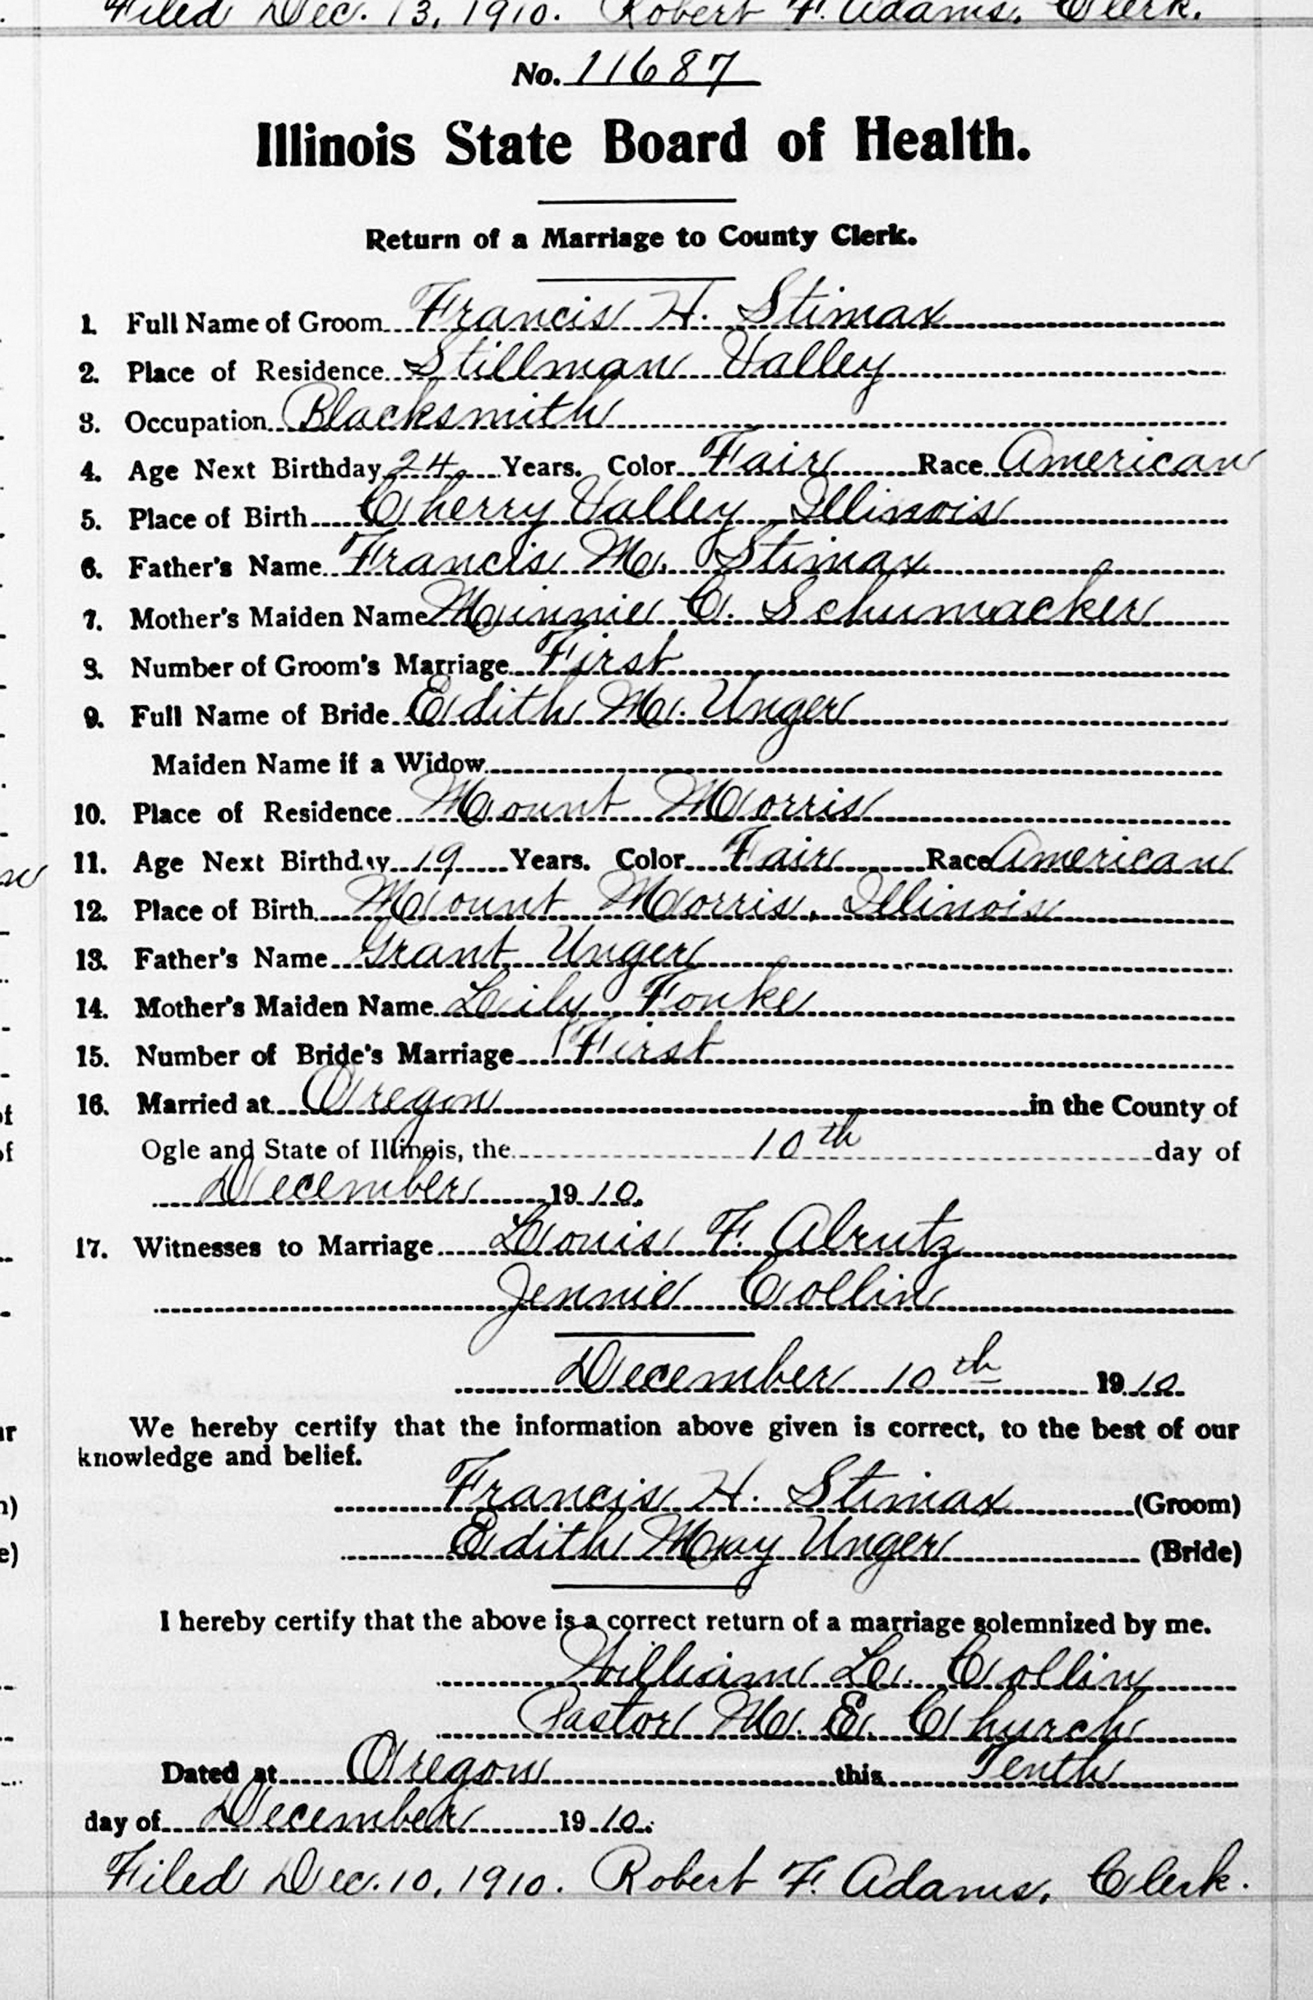 Filed Dec. 13, 1910. Robert F. Adams, Clerk.
No. 11687
Illinois State Board of Health.
Return of a Marriage to County Clerk.
1. Full Name of Groom Francis H. Stimax
2. Place of Residence Stillman Valley
3. Occupation Blacksmith
4. Age Next Birthday 24 Years. Color Fair Race American
5. Place of Birth Cherry Valley Illinois
6. Father's Name Francis M. Stimax
7. Mother's Maiden Name Minnie C. Schumacker
8. Number of Groom's Marriage First
9. Full Name of Bride Edith M. Unger
Maiden Name if a Widow
10. Place of Residence Mount Morris
11. Age Next Birthday 19 Years. Color Fair Race American
12. Place of Birth Mount Morris, Illinois
13. Father's Name Grant Unger
14. Mother's Maiden Name Lily Fouke
15. Number of Bride's Marriage First
16. Married at Oregon in the County of
Ogle and State of Illinois, the 10th day of
December 1910.
17. Witnesses to Marriage Louis F. Alrutz
Jennie Collin
December 10th 1910.
We hereby certify that the information above given is correct, to the best of our
knowledge and belief.
Francis H. Stimax (Groom)
Edith May Unger (Bride)
I hereby certify that the above is a correct return of a marriage solemnized by me.
William L. Collin
Pastor M. E. Church
Dated at Oregon this Tenth
day of December 1910.
Filed Dec. 10, 1910. Robert F. Adams, Clerk.